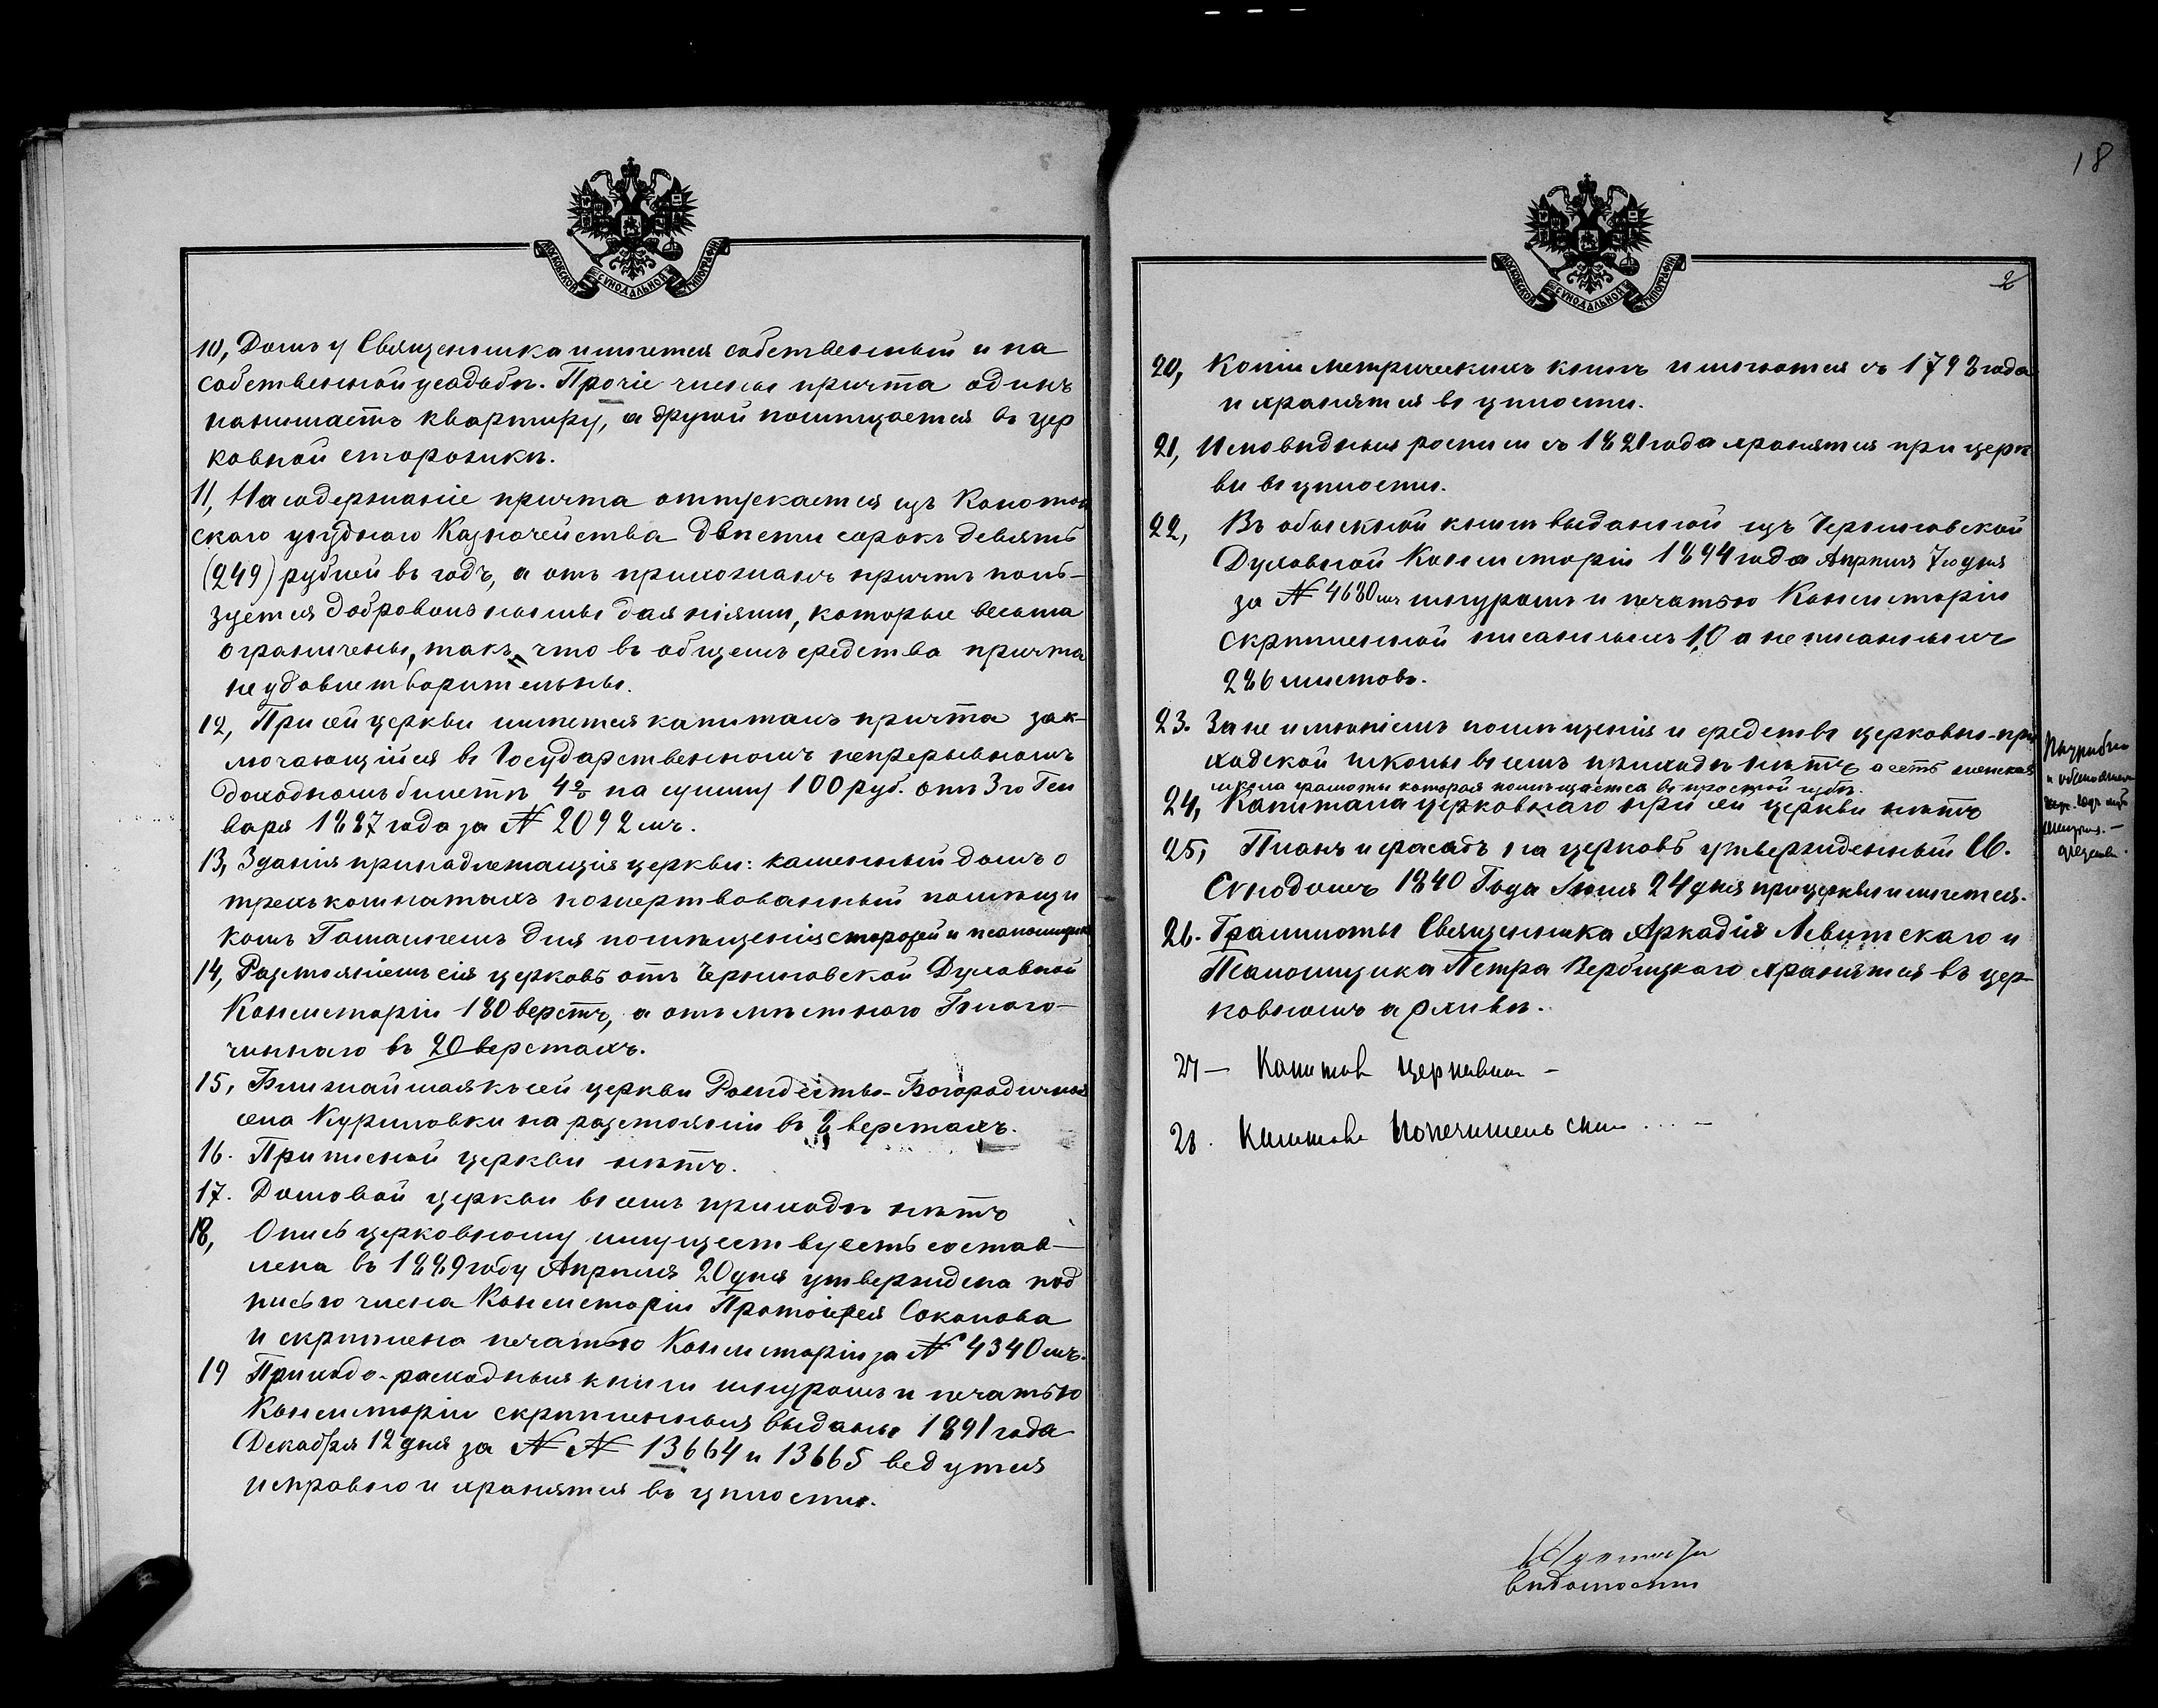 МОСКОВСКОЙ СѴНОДАЛЬНОЙ ТИПОГРАФІИ
10, Домъ у Священника имѣется собственный и на
собственной усадьбѣ. Прочіе члены причта одинъ
нанимаетъ квартиру, а другой помѣщается въ цер
ковной сторожкѣ.
11, На содержаніе причта отпускается изъ Конотоп
скаго уѣзднаго Казначейства двѣсти сорокъ девять
(249) рублей въ годъ, а отъ прихожанъ причтъ поль-
зуется добровольными даяніями, которые весьма
ограничены, такъ что въ общемъ средства причта
неудовлетворительны.
12, При сей церкви имѣется капиталъ причта зак-
лючающійся въ Государственномъ непрерывномъ
доходномъ билетѣ 4% на сумму 100 руб. отъ 3го Ген
варя 1887 года за № 2092мъ.
13, Зданія принадлежащія церкви: каменный домъ о
трехъ комнатахъ пожертвованный помѣщи
комъ Гамалѣемъ для помѣщенія сторожей и псаломщика
14, Разстояніемъ сія церковь отъ Черниговской Духовной
Консисторіи 180 верстъ, а отъ мѣстнаго Благо-
чиннаго въ 20 верстахъ.
15, Ближайшая къ сей церкви Рождество-Богородичная
села Куриловки на разстояніи въ 2 верстахъ.
16. Приписной церкви нѣтъ.
17. Домовой церкви въ семъ приходѣ нѣтъ
18, Опись церковному имуществу есть состав-
лена въ 1889 году Апрѣля 20 дня утверждена под
писью члена Консисторіи Протоіерея Соколова
и скрѣплена печатью Консисторіи за № 4340мъ.
19 Приходо-расходныя книги шнуромъ и печатью
Консисторіи скрѣпленныя выданы 1891 года
Декабря 12 дня за №№ 13664 и 13665 ведутся
исправно и хранятся въ цѣлости.
18
МОСКОВСКОЙ СѴНОДАЛЬНОЙ ТИПОГРАФІИ
2
20, Копіи метрическихъ книгъ имѣются съ 1793 года
и хранятся въ цѣлости.
21, Исповѣдныя росписи съ 1821 года хранятся при церк
ви въ цѣлости.
22, Въ обыскной книгѣ выданной изъ Черниговской
Духовной Консисторіи 1894 года Апрѣля 7го дня
за № 4680мъ шнуромъ и печатью Консисторіи
скрѣпленной писанныхъ 10 а неписанныхъ
286 листовъ.
23. За не имѣніемъ помѣщенія и средствъ церковно-при
ходской школы въ семъ приходѣ нѣтъ, а есть женская
школа грамоты которая помѣщается въ простой избѣ.
24, Капитала церковнаго при сей церкви нѣтъ
25, Планъ и фасадъ на церковь утвержденный Св.
Сѵнодомъ 1840 Года Іюня 24 дня при церкви имѣется.
26. Граммоты Священника Аркадія Левитскаго и
Псаломщика Петра Вербицкаго хранятся въ цер-
ковномъ архивѣ.
27 –
28. попечительства
вѣдомости